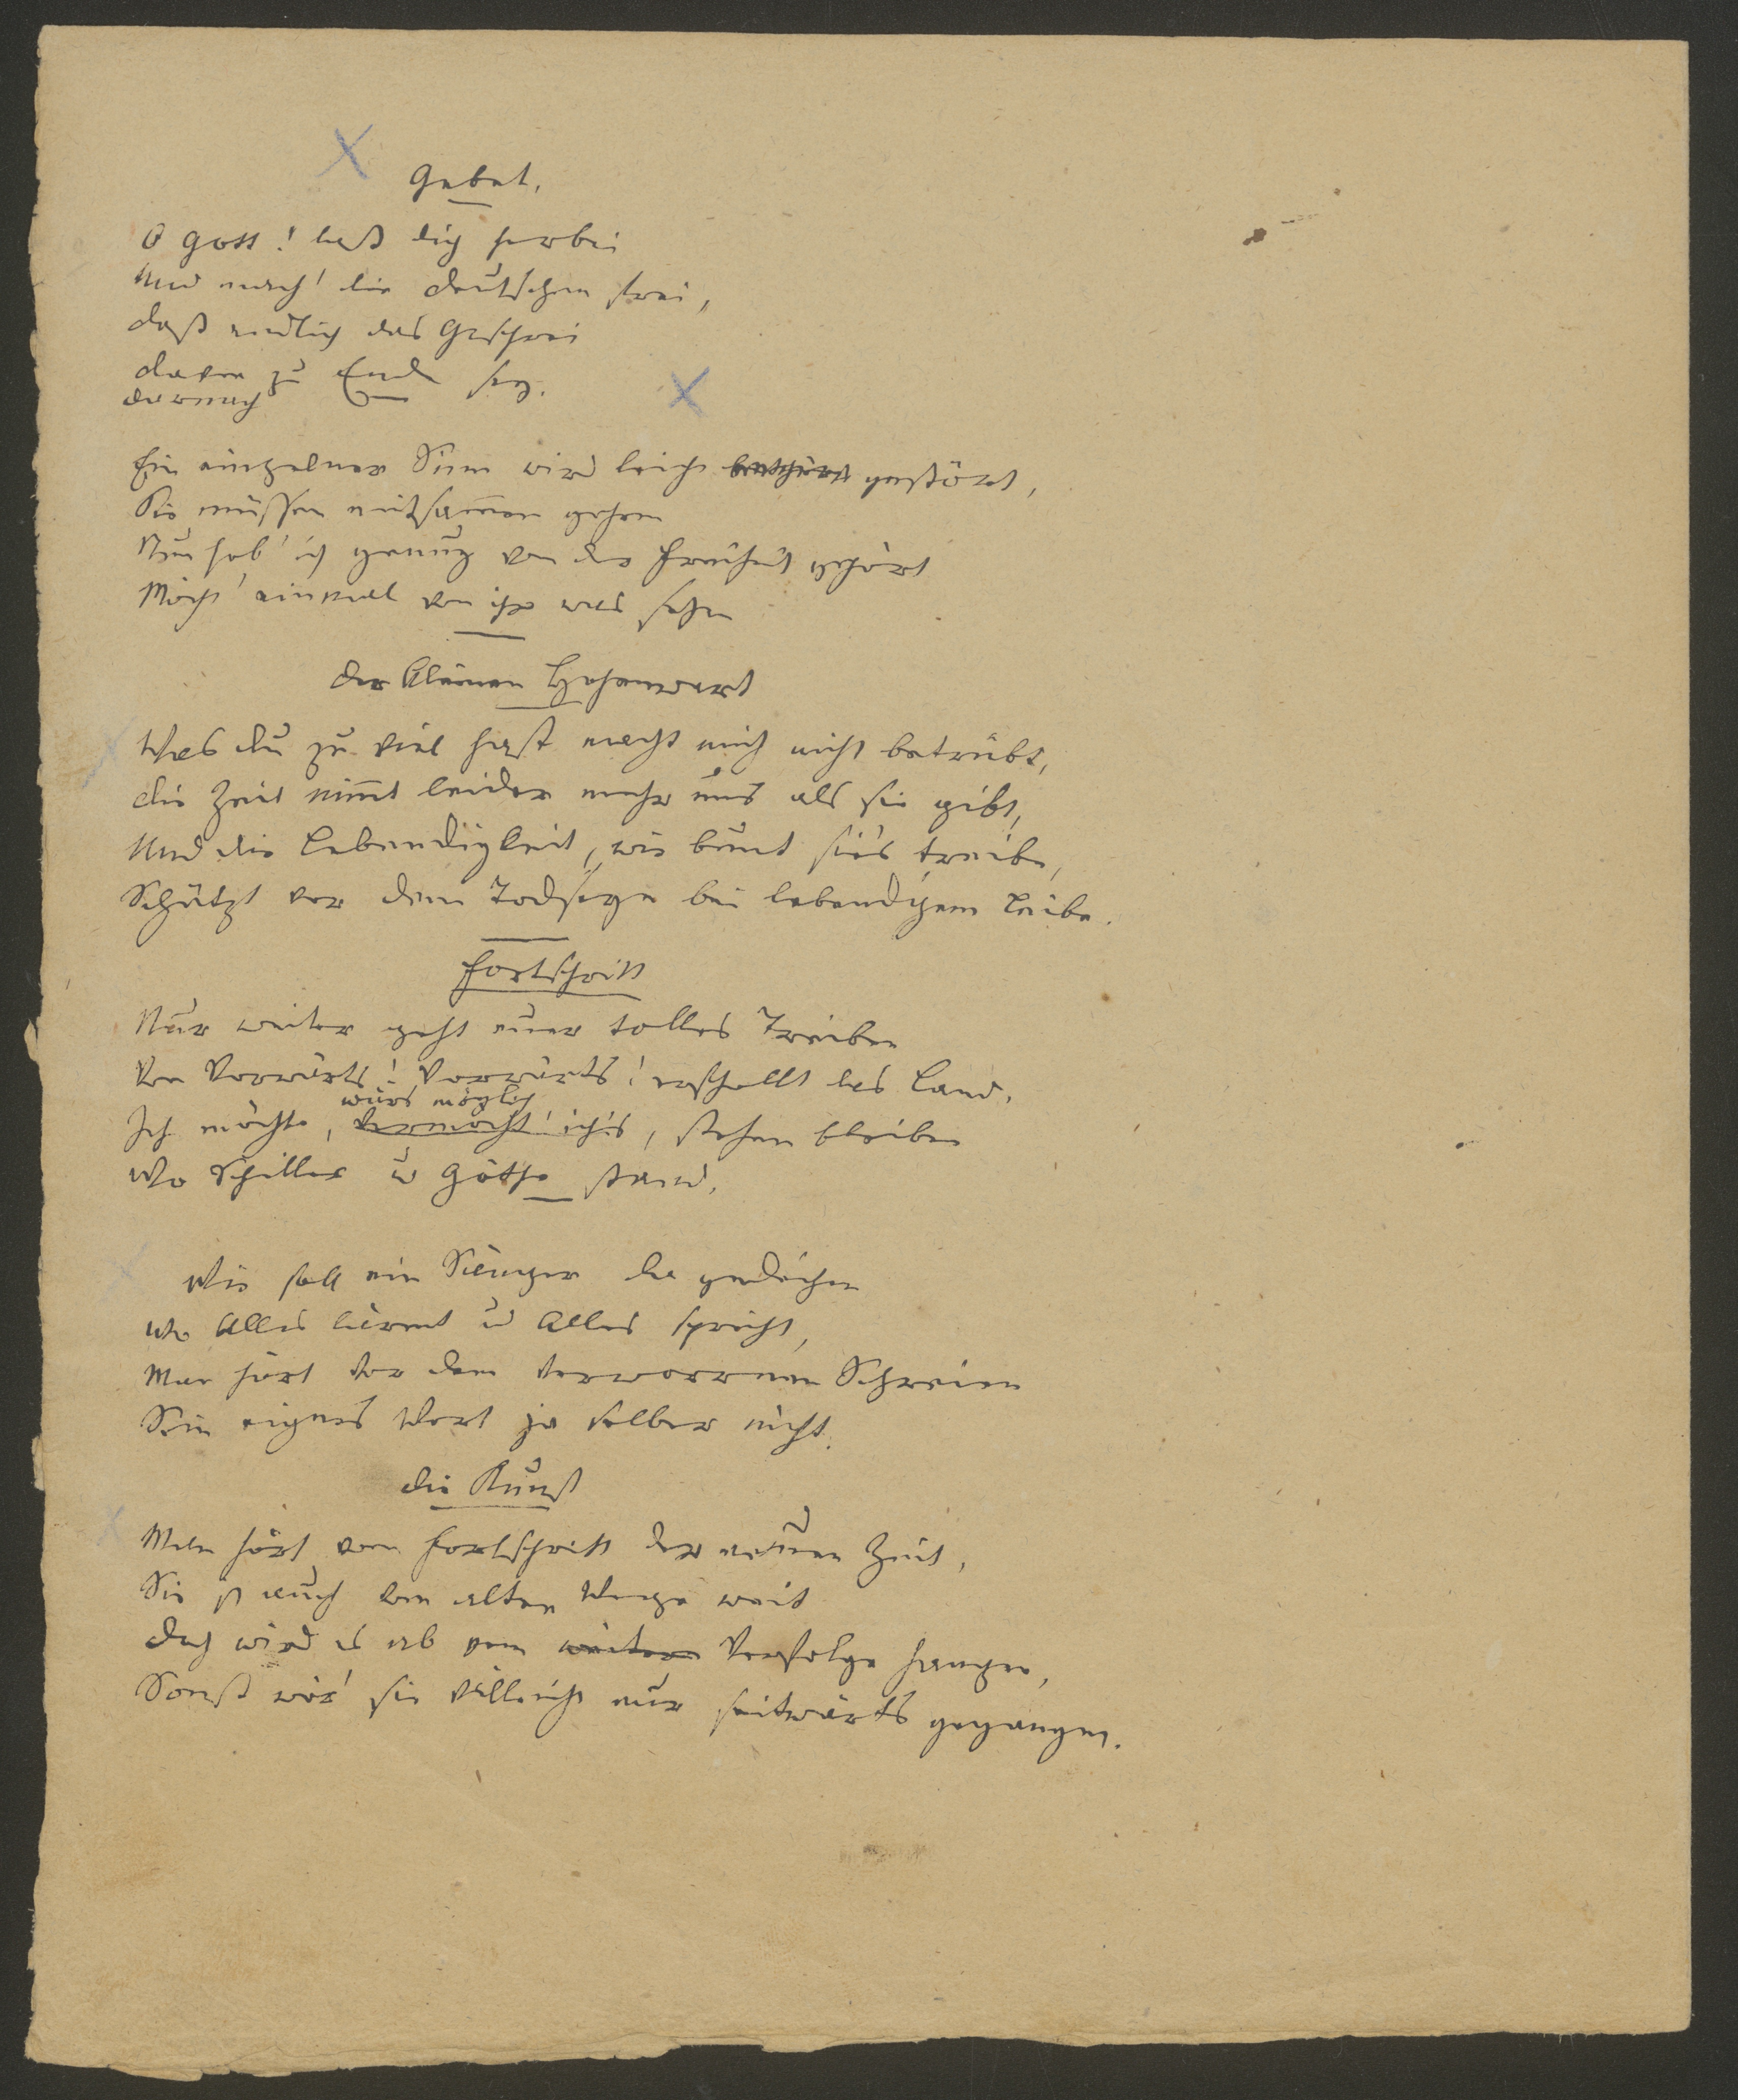 Gebet.
O Gott! laß dich herbei
Und mach' die Deutschen frei,
Daß endlich das Geschrei
Davon zu Ende sey.
darnach
Ein einzelner Sinn wird leicht gestört,
Sie müssen mitsammen gehen
Nun hab' ich genug von der Freiheit gehört
Möcht' einmal von ihr was sehen
Der kleinen Hohenwart
Was du zu viel hast macht mich nicht betrübt,
Die Zeit nimmt leider mehr uns als sie gibt,
Und die Lebendigkeit, wie bunt sie's treibe,
Schützt vor dem Todseyn bei lebendigem Leibe.
Fortschritt
Nur weiter geht euer tolles Treiben
Von Vorwärts! Vorwärts! erschallt das Land.
wärs möglich
Ich möchte, vermocht' ich's, stehen bleiben
Wo Schiller u Göthe stand.
Wie soll ein Sänger da gedeihen
Wo Alles lärmt u Alles spricht,
Man hört vor dem verworrnen Schreien
Sein eignes Wort ja selber nicht.
Die Kunst
Man hört vom Fortschritt der neuen Zeit,
Sie ist auch vom alten Wege weit
Doch wird es ab vom weitern Verfolge hangen,
Sonst wär' sie vielleicht nur seitwärts gegangen.